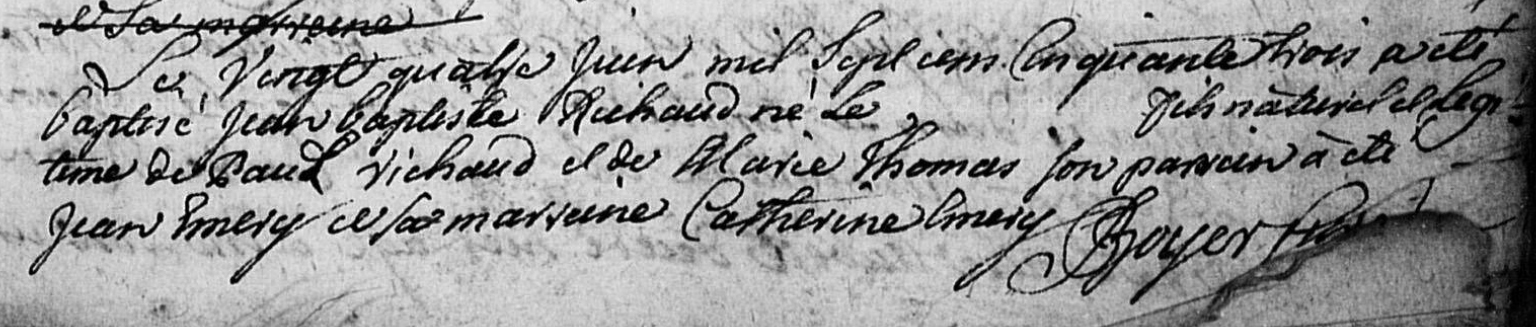 et Sa marraine
Le Vingt quatre Juin mil Sept cens Cinquante trois a eté
baptisé Jean baptiste Richaud né Le fils naturel et Legi-
time de Paul richaud et de Marie Thomas son parrain à eté
Jean Emery et sa marraine Catherine Emery Boyer